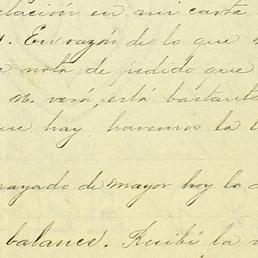 relación en mi carta
. En razón de lo que
nota de pedido que
verá, está bastante
que hay, haremos la
rayado de mayor hoy lo
balance. Recibí la